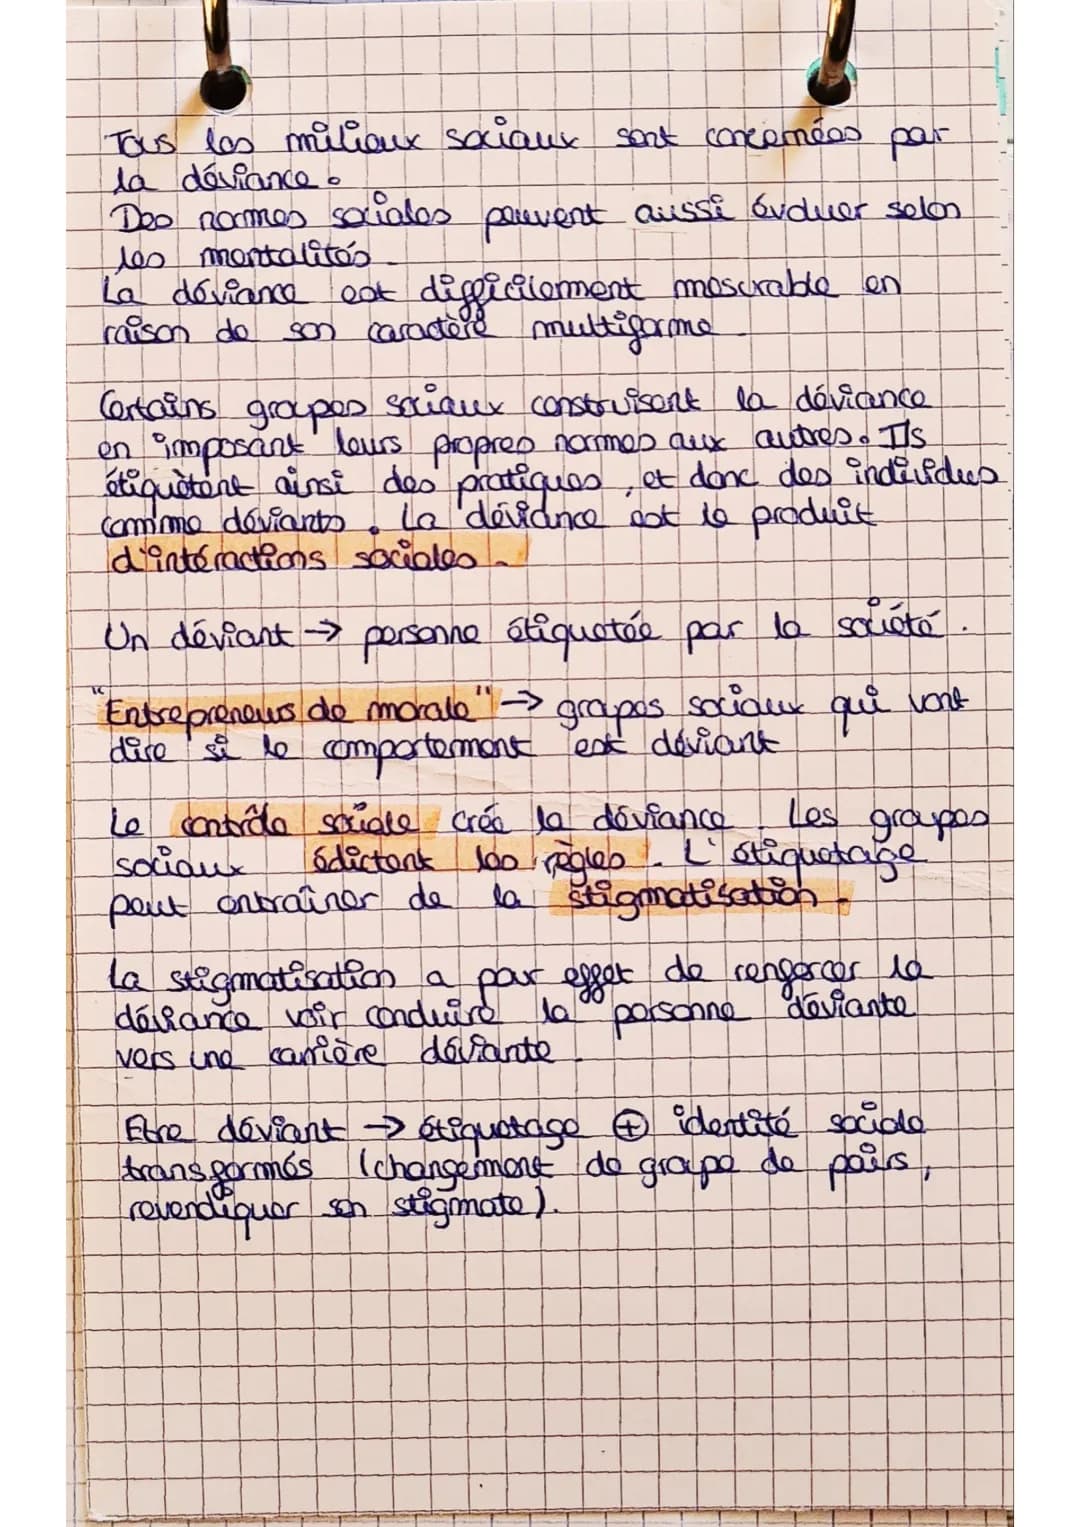 Tous les milieux sociaux sont concernées par
la déviance.
Des normes sociales peuvent aussi évoluer selon
les mentalités.
La déviance est difficilement mesurable en
raison de son caractère multiforme.
Certains groupes sociaux construisent la déviance
en imposant leurs propres normes aux autres. Ils
étiquètent ainsi des pratiques, et donc des individus
comme déviants. La déviance est le produit
d'intéractions sociales.
Un déviant → personne étiquetée par la société.
"Entrepreneurs de morale" → groupes sociaux qui vont
dire si le comportement est déviant
Le contrôle sociale crée la déviance. Les groupes
sociaux édictent les règles. L'étiquetage
peut entraîner de la stigmatisation.
La stigmatisation a pour effet de renforcer la
déviance voir conduire la personne déviante
vers une carrière déviante.
Etre déviant → étiquetage ⊕ identité sociale
transformés (changement de groupe de pairs,
revendiquer son stigmate).